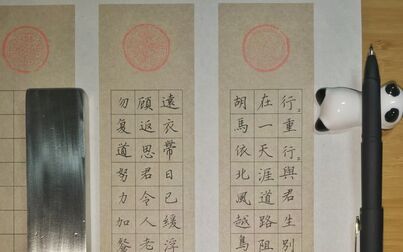 行々重行々與君生別
在一天涯道路阻
胡馬依北風越鳥
遠衣帶日已緩浮
顧返思君令人老
勿复道努力加餐